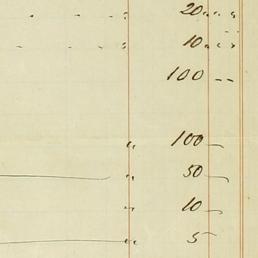 " 20 " "
" 10 " "
100 --
" 100 -
" 50 -
" 10 -
" 5 -